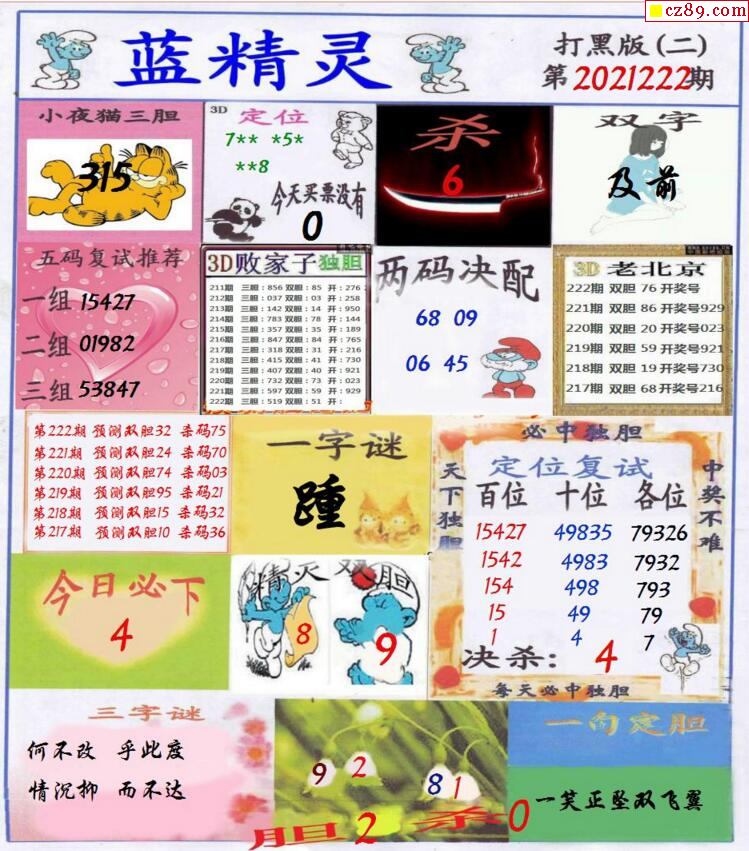 cz89.com
蓝精灵
打黑版(二)
第2021222期
小夜猫三胆
315
3D 定位
7** *5*
**8
今天买票没有
0
杀
6
双字
及前
五码复试推荐
一组 15427
二组 01982
三组 53847
3D败家子独胆
211期 三胆：856 双胆：85 开：276
212期 三胆：037 双胆：03 开：258
213期 三胆：142 双胆：14 开：950
214期 三胆：783 双胆：78 开：144
215期 三胆：357 双胆：35 开：189
216期 三胆：847 双胆：84 开：765
217期 三胆：318 双胆：31 开：216
218期 三胆：415 双胆：41 开：730
219期 三胆：407 双胆：40 开：921
220期 三胆：732 双胆：73 开：023
221期 三胆：597 双胆：59 开：929
222期 三胆：519 双胆：51 开：
两码决配
68 09
06 45
3D 老北京
222期 双胆 76 开奖号
221期 双胆 86 开奖号929
220期 双胆 20 开奖号023
219期 双胆 59 开奖号921
218期 双胆 19 开奖号730
217期 双胆 68 开奖号216
第222期 预测双胆32 杀码75
第221期 预测双胆24 杀码70
第220期 预测双胆74 杀码03
第219期 预测双胆95 杀码21
第218期 预测双胆15 杀码32
第217期 预测双胆10 杀码36
一字谜
踵
必中独胆
天下独胆
中奖不难
定位复试
百位 十位 各位
15427 49835 79326
1542 4983 7932
154 498 793
15 49 79
1 4 7
决杀： 4
每天必中独胆
今日必下
4
精灵双胆
8
9
三字谜
何不改 乎此度
情况抑 而不达
9 2 8 1
胆 2 杀0
一句定胆
一笑正坠双飞翼